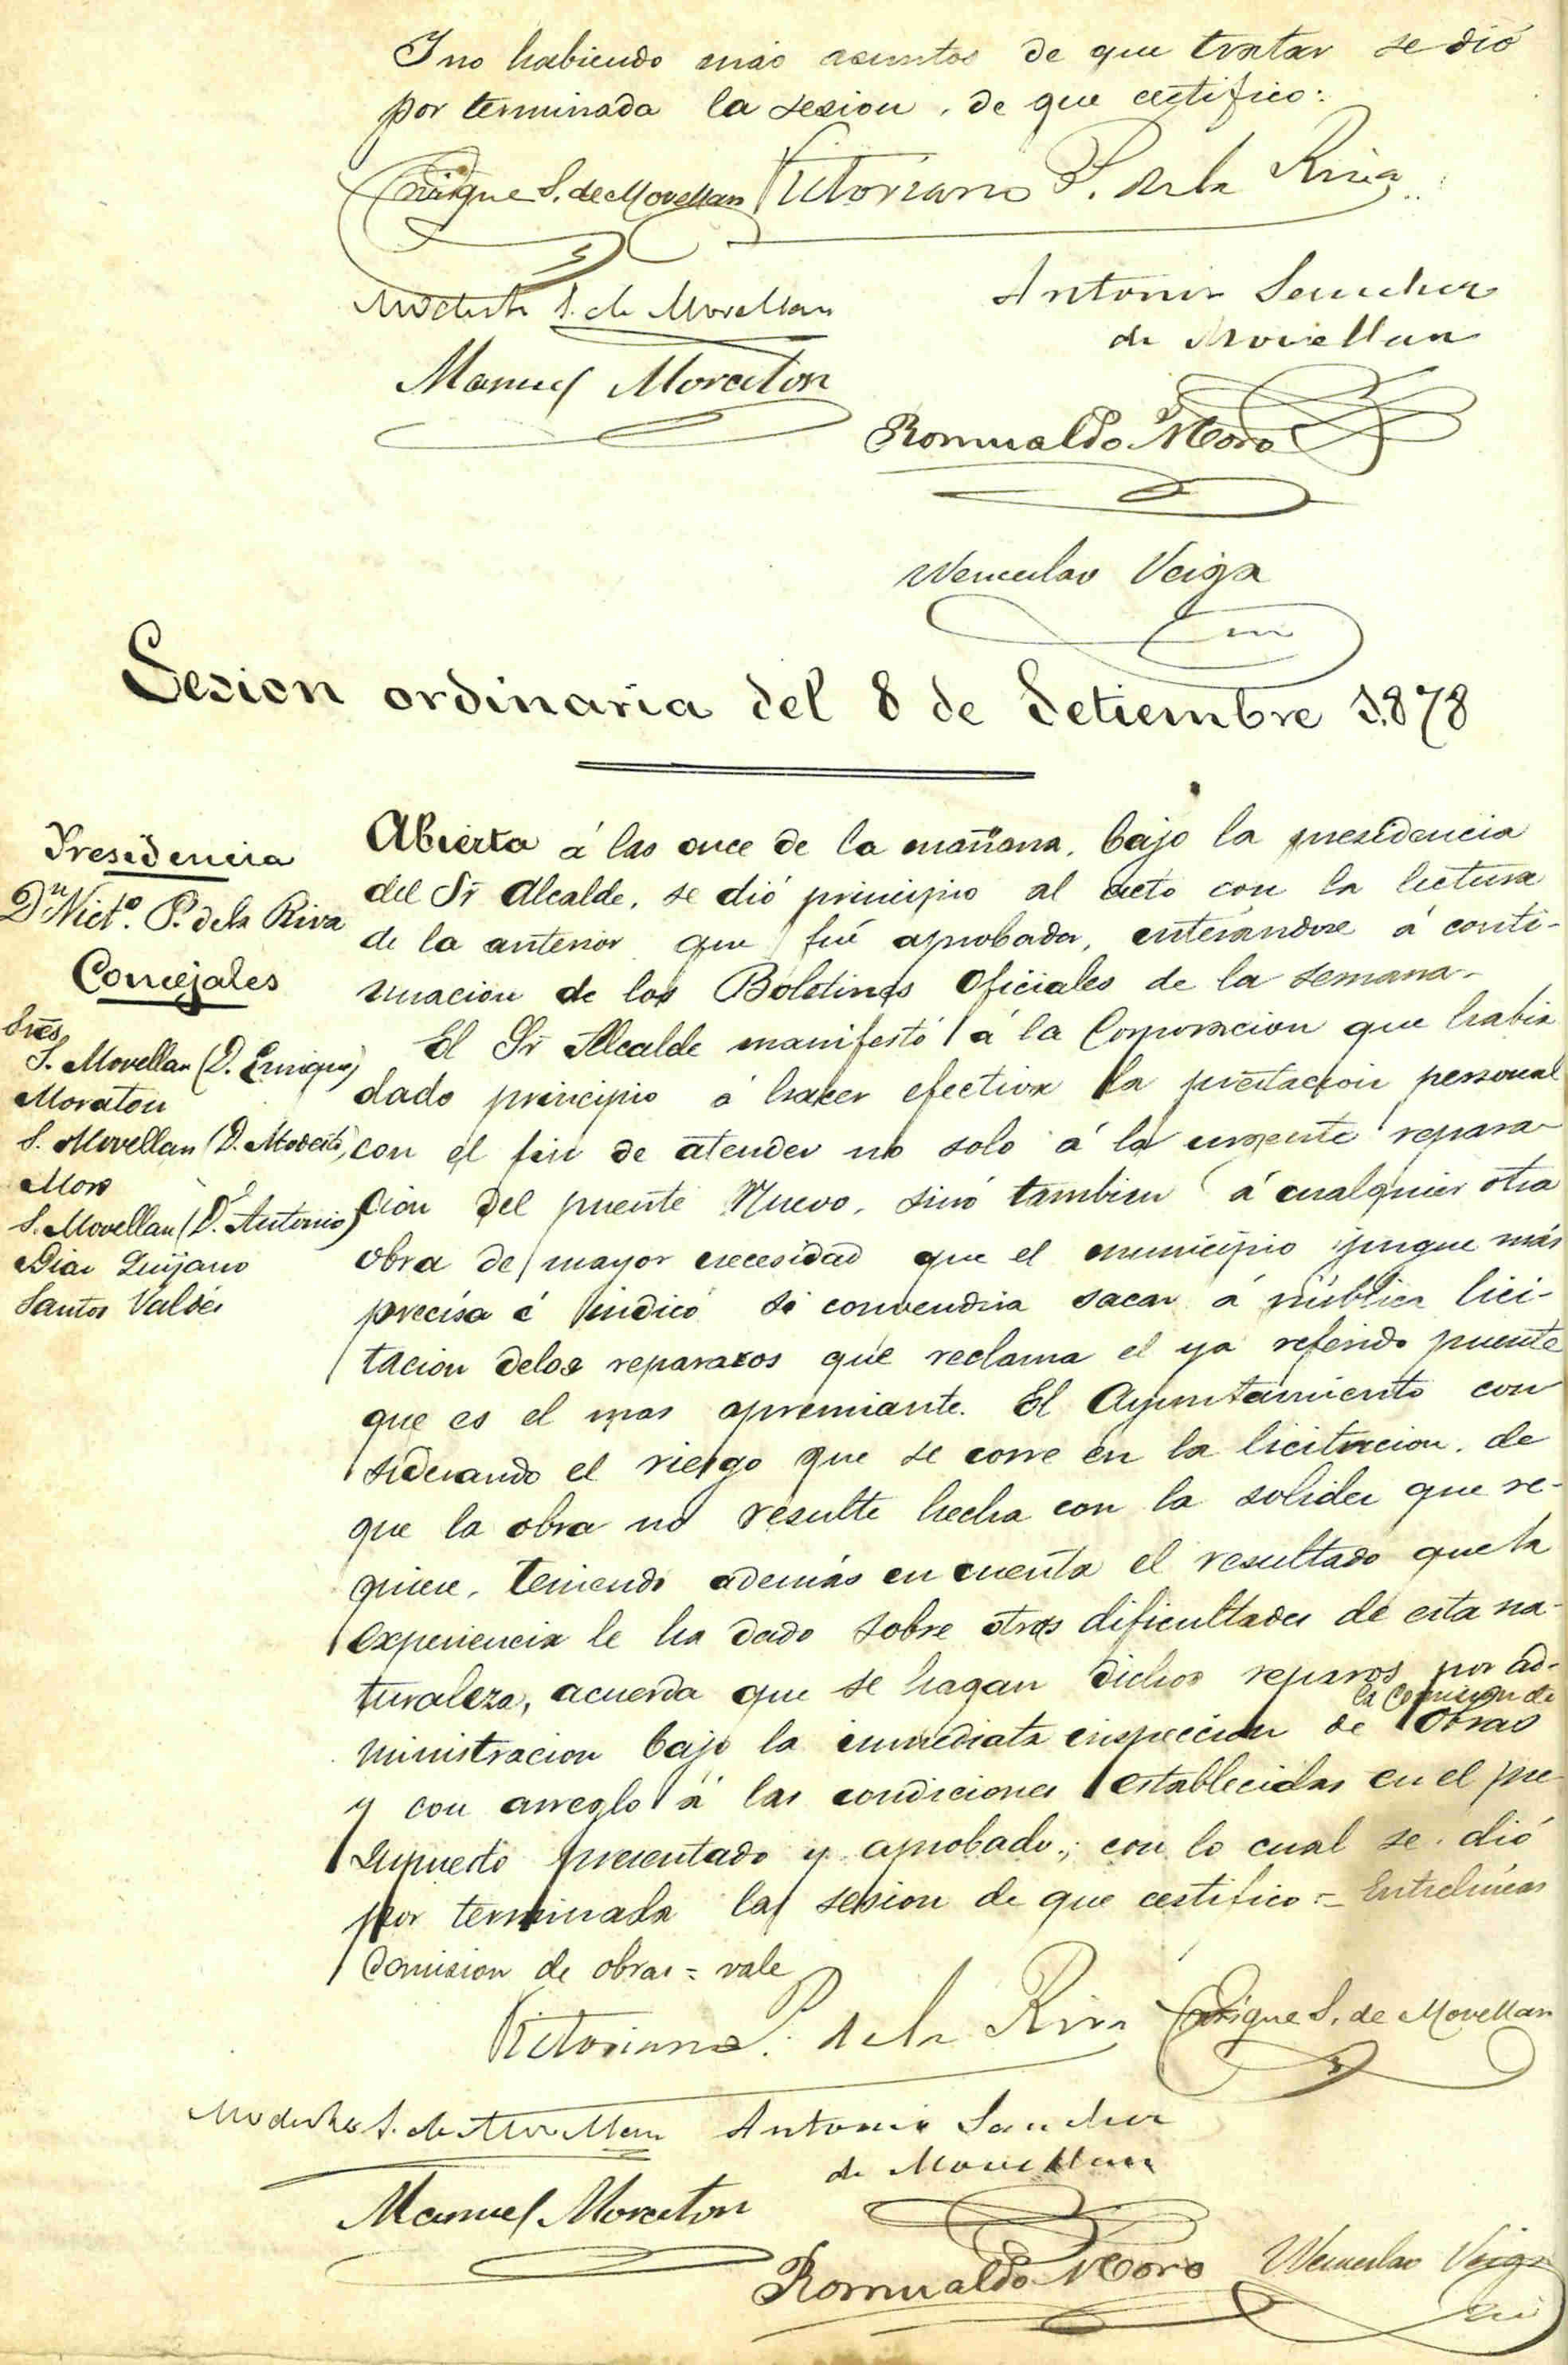 Y no habiendo más asuntos de que tratar se dió
por terminada la sesion, de que certifico:
Enrique S. de Movellan Victoriano P. de la Riva
Modesto S. de Movellan
Antonio Sanchez
de Movellan
Manuel Moraton
Romualdo Moro
Wenceslao Veiga
Sesion ordinaria del 8 de Setiembre 1.878
Presidencia
Dn Victo. P. de la Riva
Concejales
Sres
S. Movellan (D. Enrique)
Moraton
S. Movellan (D. Modesto)
Moro
S. Movellan (D. Antonio)
Diaz Quijano
Santos Valdés
Abierta á las once de la mañana, bajo la presidencia
del Sr Alcalde, se dió principio al acto con la lectura
de la anterior que fué aprobada, enterándose á conti-
nuacion de los Boletines Oficiales de la semana.
El Sr Alcalde manifestó á la Corporacion que habia
dado principio á hacer efectiva la prestacion personal
con el fin de atender no solo á la urgente repara-
cion del puente Nuevo, sinó tambien á cualquier otra
obra de mayor necesidad que el municipio juzgue más
precisa é indicó si convendria sacar á pública lici-
tacion delos reparaxos que reclama el ya referido puente
que es el mas apremiante. El Ayuntamiento con
siderando el riesgo que se corre en la licitacion, de
que la obra no resulte hecha con la solidez que re-
quiere, teniendo además en cuenta el resultado que la
experiencia le ha dado sobre otras dificultades de esta na-
turaleza, acuerda que se hagan dichos reparos por ad-
ministracion bajo la inmediata inspeccion de la Comision de Obras
y con arreglo á las condiciones establecidas en el pre
supuesto presentado y aprobado; con lo cual se dió
por terminada la sesion de que certifico = Entrelineas
Comision de obras = vale
Victoriano P. de la Riva Enrique S. de Movellan
Modesto S. de Movellan Antonio Sanchez
de Movellan
Manuel Moraton
Romualdo Moro Wenceslao Veiga